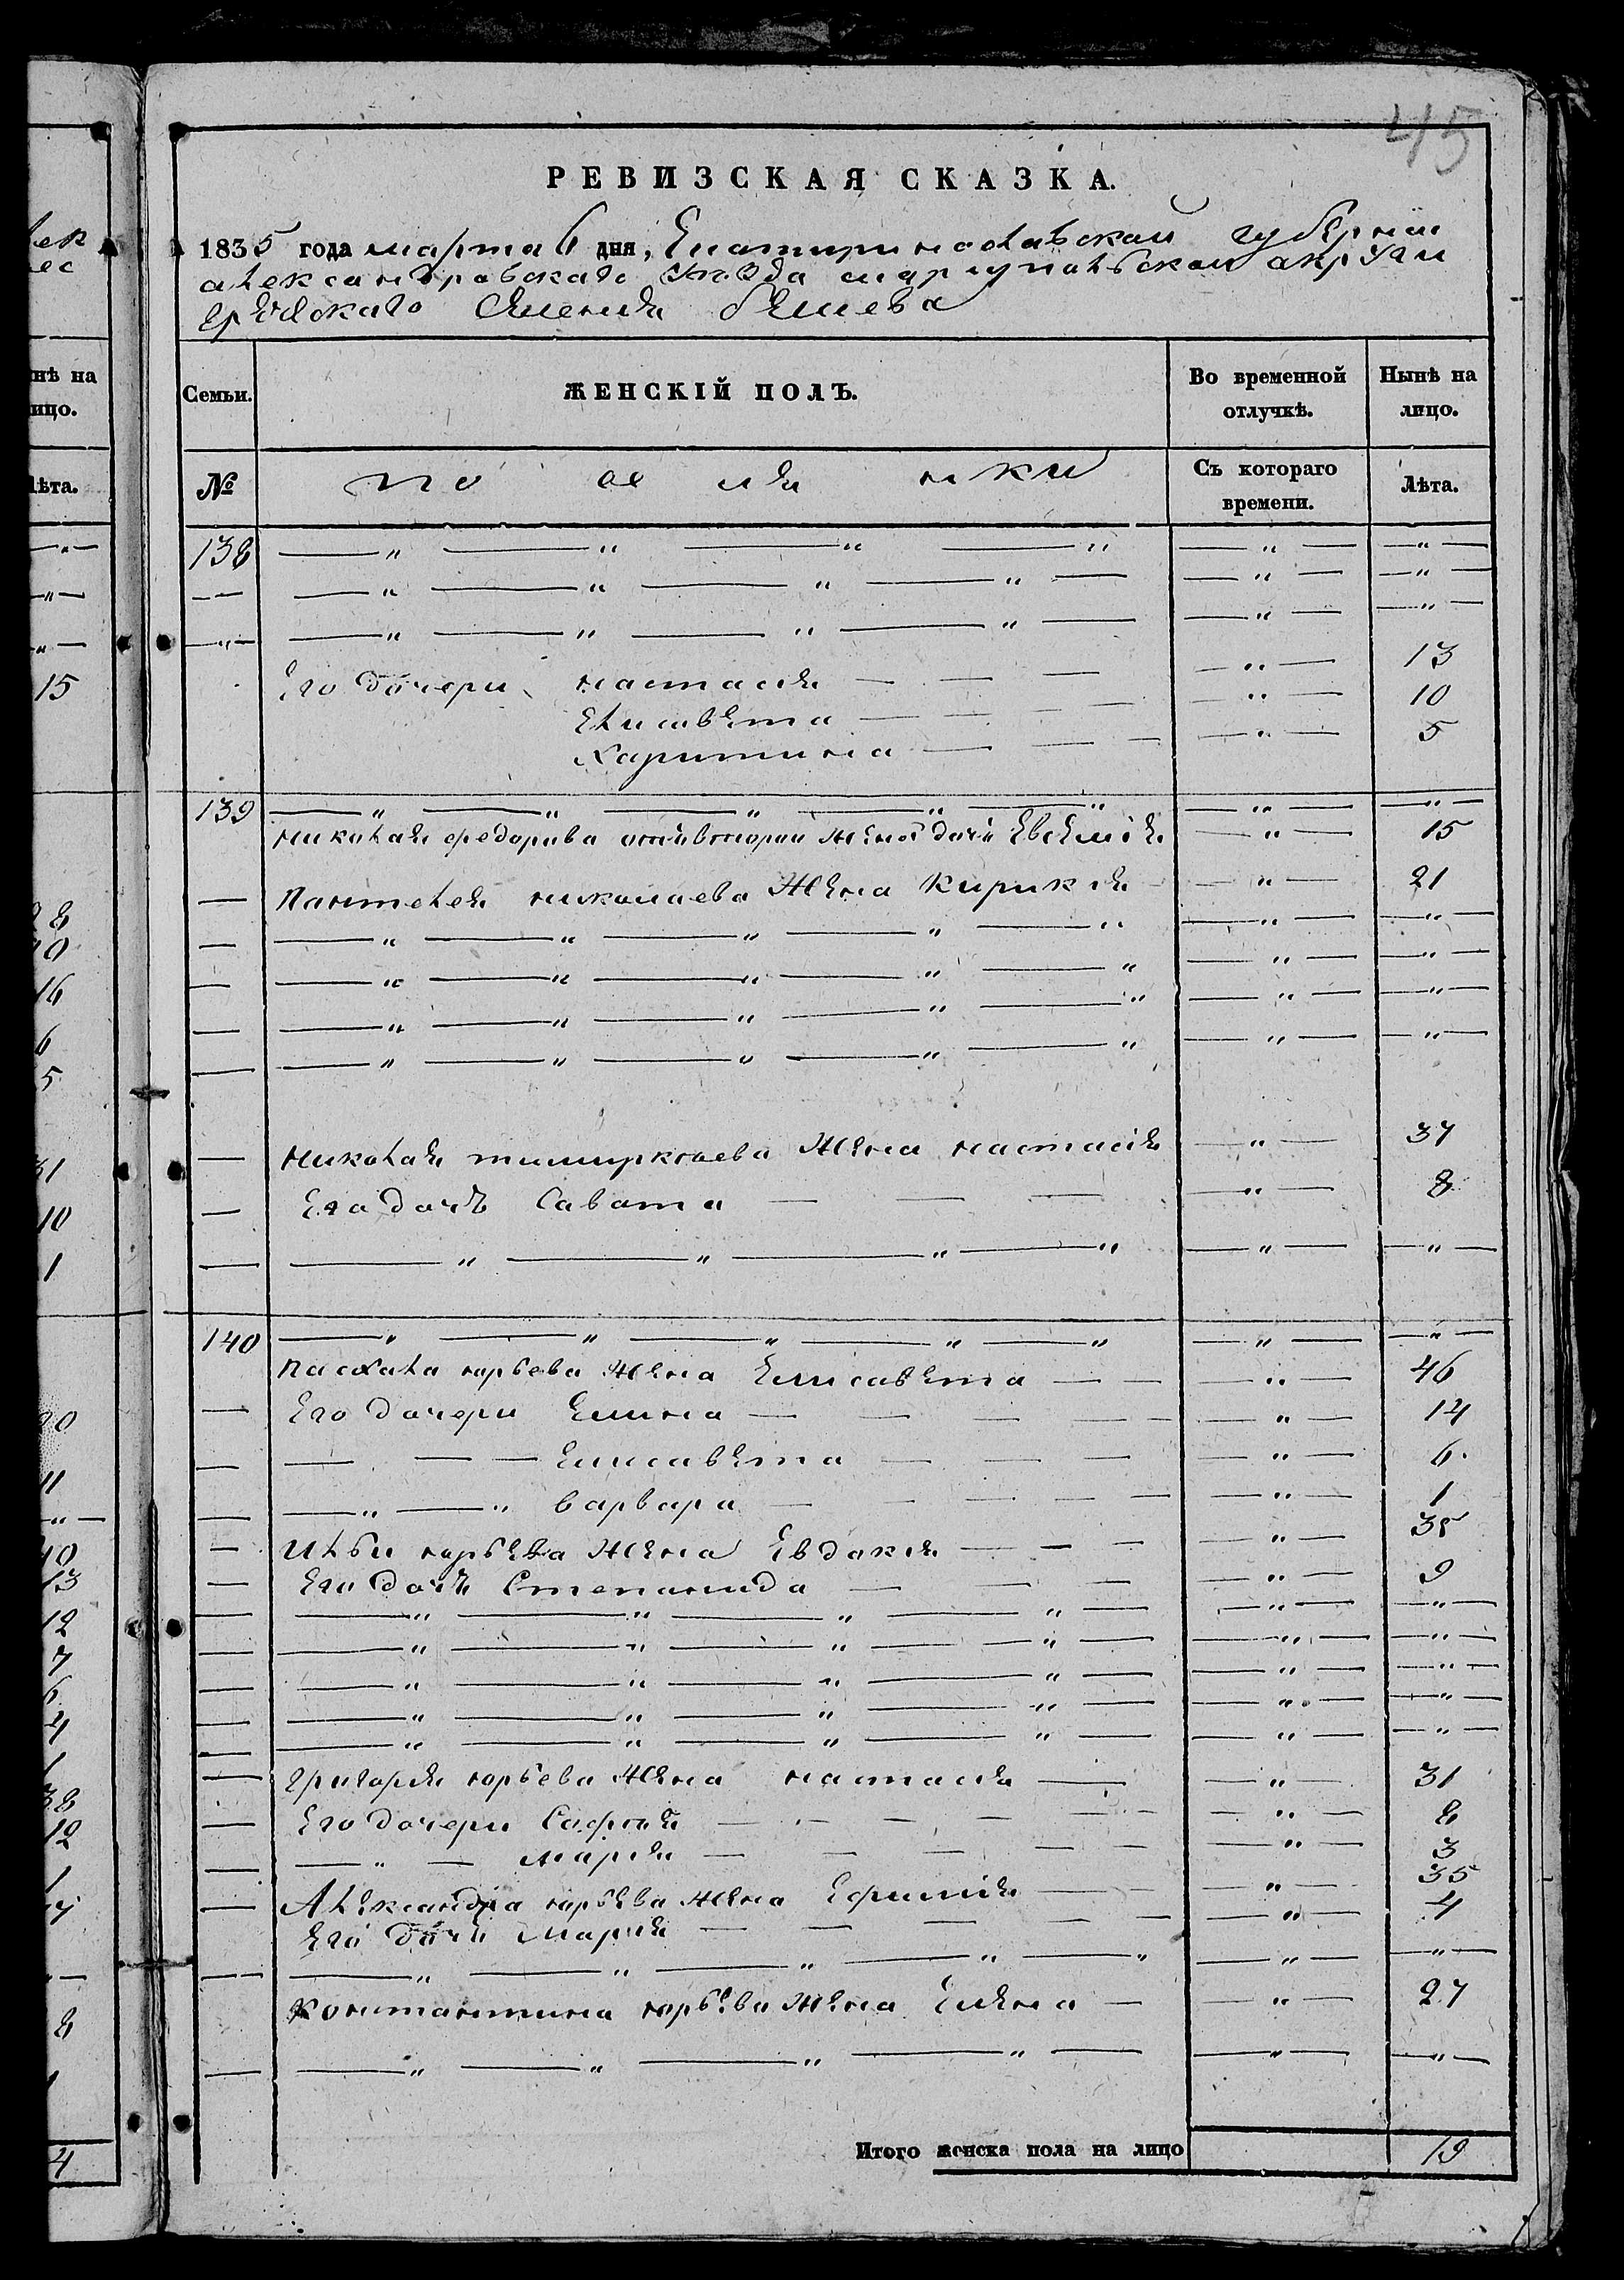 45
РЕВИЗСКАЯ СКАЗКА.
1835 года марта 6 дня, Екатеринославской губернии
александровскаго уезда мариупольскои округи
греческаго селения бешева
нѣ на
ицо.
Семьи.
ЖЕНСКІЙ ПОЛЪ.
Во временной
отлучкѣ.
Нынѣ на
лицо.
лѣта.
№
поселянки
Съ котораго
времени.
Лѣта.
138 — " — " — " — " — " — — " —
— — — " — " — " — " — — " — — " —
— " — — " — " — " — " — — " — — " —
15
Его дочери настасия — — — — " — 13
Елисавета — — — — — " — 10
Харитина — — — — " — 5
139 — " — " — " — " — " — " — — " —
николая федорова от втории жены дочь Евсемия — " — 15
— Пантелея николаева жена Кирикия — " — 21
— — " — " — " — " — " — " — — " —
— — " — " — " — " — " — " — — " —
— — " — " — " — " — " — " — — " —
— — " — " — " — " — " — " — — " —
— николая темиркоева жена настасия — " — 37
— Его дочь Савата — — — — " — 8
— — " — " — " — " — " — — " —
140 — " — " — " — " — " — " — — " —
Пасхала юрьева жена Елисавета — — — " — 46
— Его дочери Елина — — — — — " — 14
— — — — Елисавета — — — — " — 6
— — " — " варвара — — — — — — " — 1
— Ильи юрьева жена Евдокия — — — — " — 38
— Его дочь Степанида — — — — " — 9
— — " — " — " — " — — " — — " —
— — " — " — " — — " — — " — — " —
— — " — " — " — " — — " — — " —
— — " — " — " — " — — " — — " —
— — " — " — " — " — — " — — " —
— григория юрьева жена настасия — — " — 31
— Его дочери София — — — — — — " — 8
— — " — мария — — — — — — " — 3
— Александра юрьева жена Ефимия — — — " — 35
Его дочь мария — — — — — — " — 4
— — — " — " — " — " — " — " — — " —
Константина юрьева жена Елена — — " — 27
— — " — " — " — " — — " — — " —
Итого женска пола на лицо 19